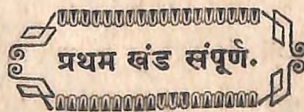 प्रथम खंड संपूर्ण.